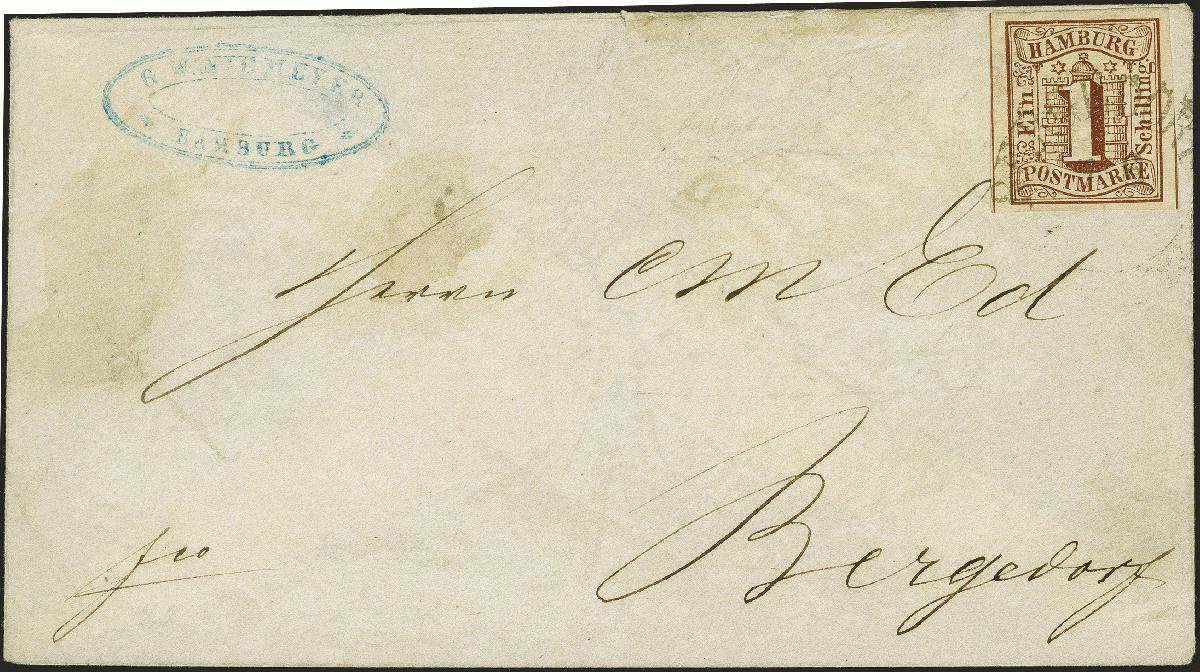 G. W. NIEMEYER
HAMBURG
HAMBURG
Ein
1
Schilling
POSTMARKE
Herrn C M Ed
Bergedorf
fco